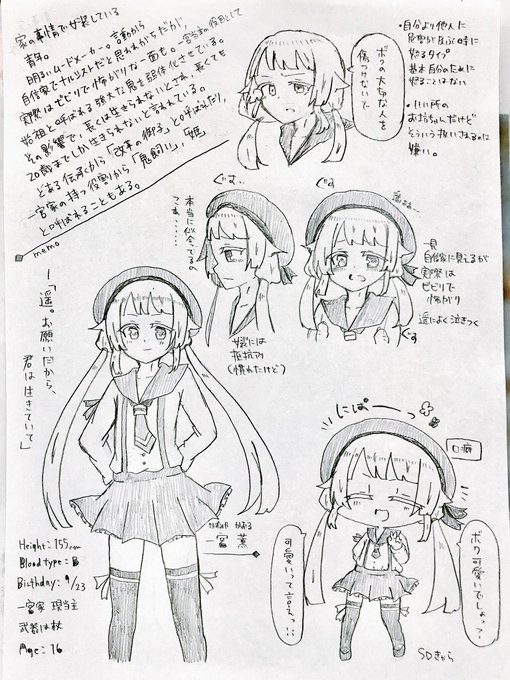 家の事情で女装している
青年。
明るいムードメーカー。言動から
自信家でナルシストだと思われがちだが、
実際はビビりで怖がりな一面も。一宮当主の役目として
始祖と呼ばれる強大な鬼を弱体化させている。
その影響で、長くは生きられないとされ、長くても
20歳までしか生きられないと言われている。
とある伝承から「改革の御子」と呼ばれたり、
一宮家の持つ役割から「鬼飼い」、「姫」
と呼ばれることもある。
memo
ボクの大切な人を
傷つけないで
・自分より他人に
危害が及ぶ時に
怒るタイプ
基本自分のために
怒ることはない
・いい所の
お坊ちゃんだけど
そういう扱いされるのは
嫌い。
ぐす…
本当に似合ってるの
これ……
女装には
抵抗アリ
(慣れたけど)
ぐす
遥ぁ…
一見
自信家に見えるが
実際は
ビビりで
怖がり
遥によく泣きつく
ぐす
ー「遥。お願いだから、
君は生きていて」
にぱーーっ
口癖
ボク可愛いでしょっ?
可愛いって言えっ!!
SDきゃら
一宮 薫
かおる
Height:155cm
Blood type:B
Birthday:9/23
一宮家 現当主
武器は杖
Age:16